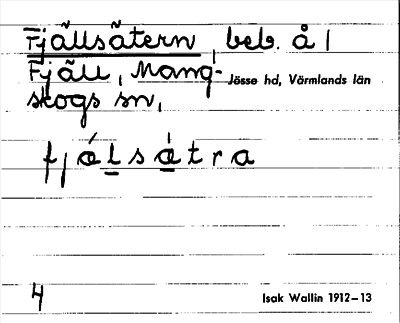 Fjällsätern, beb. å
Fjäll, Mang-
skogs sn,
Jösse hd, Värmlands län
fjälsätra
4
Isak Wallin 1912–13